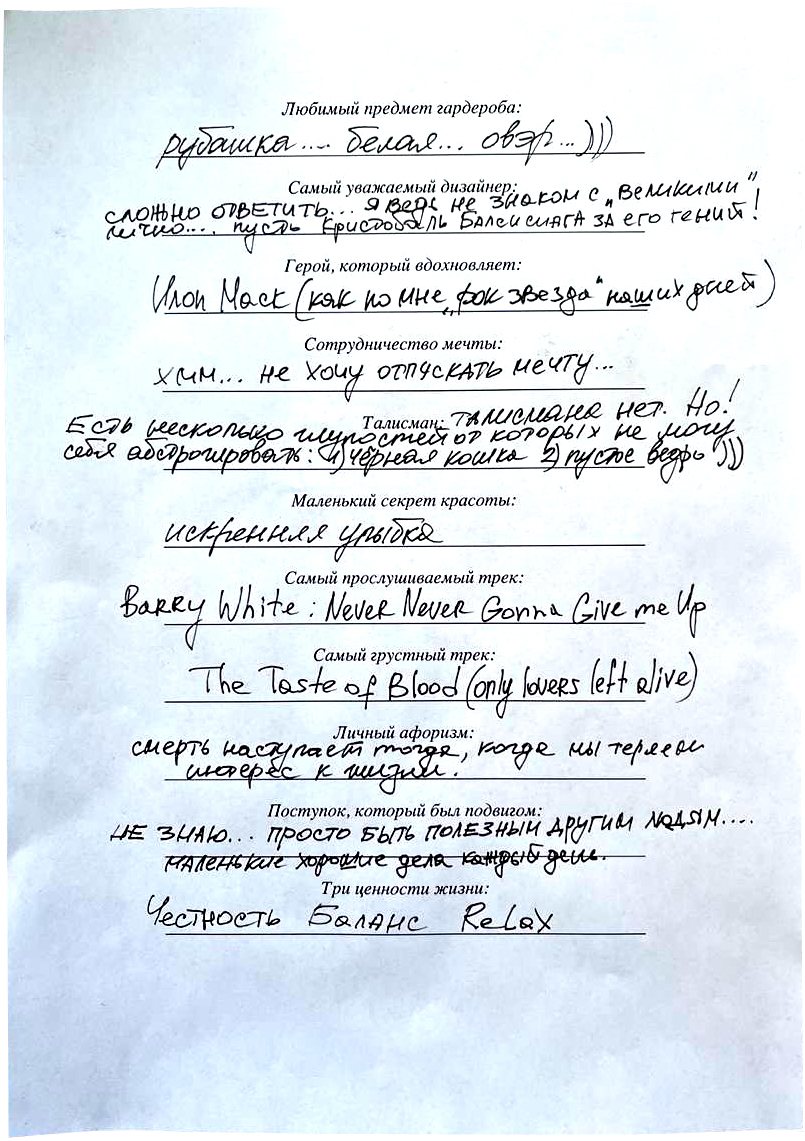 Любимый предмет гардероба:
рубашка.... белая... овэр...)))
Самый уважаемый дизайнер:
сложно ответить... я ведь не знаком с „Великими"
лично.... пусть Кристобаль Балсисиага за его гений!
Герой, который вдохновляет:
Илон Маск (как по мне „рок звезда" наших дней)
Сотрудничество мечты:
хмм... не хочу отпускать мечту...
Талисман: Талисмана нет. Но!
Есть несколько глупостей от которых не могу
себя абстрогировать: 1) чёрная кошка 2) пустое ведро )))
Маленький секрет красоты:
искренняя улыбка
Самый прослушиваемый трек:
Barry White: Never Never Gonna Give me Up
Самый грустный трек:
The Taste of Blood (only lovers left alive)
Личный афоризм:
смерть наступает тогда, когда мы теряем
интерес к жизни.
Поступок, который был подвигом:
не знаю... просто быть полезным другим людям....
маленькие хорошие дела каждый день.
Три ценности жизни:
Честность Баланс Relax